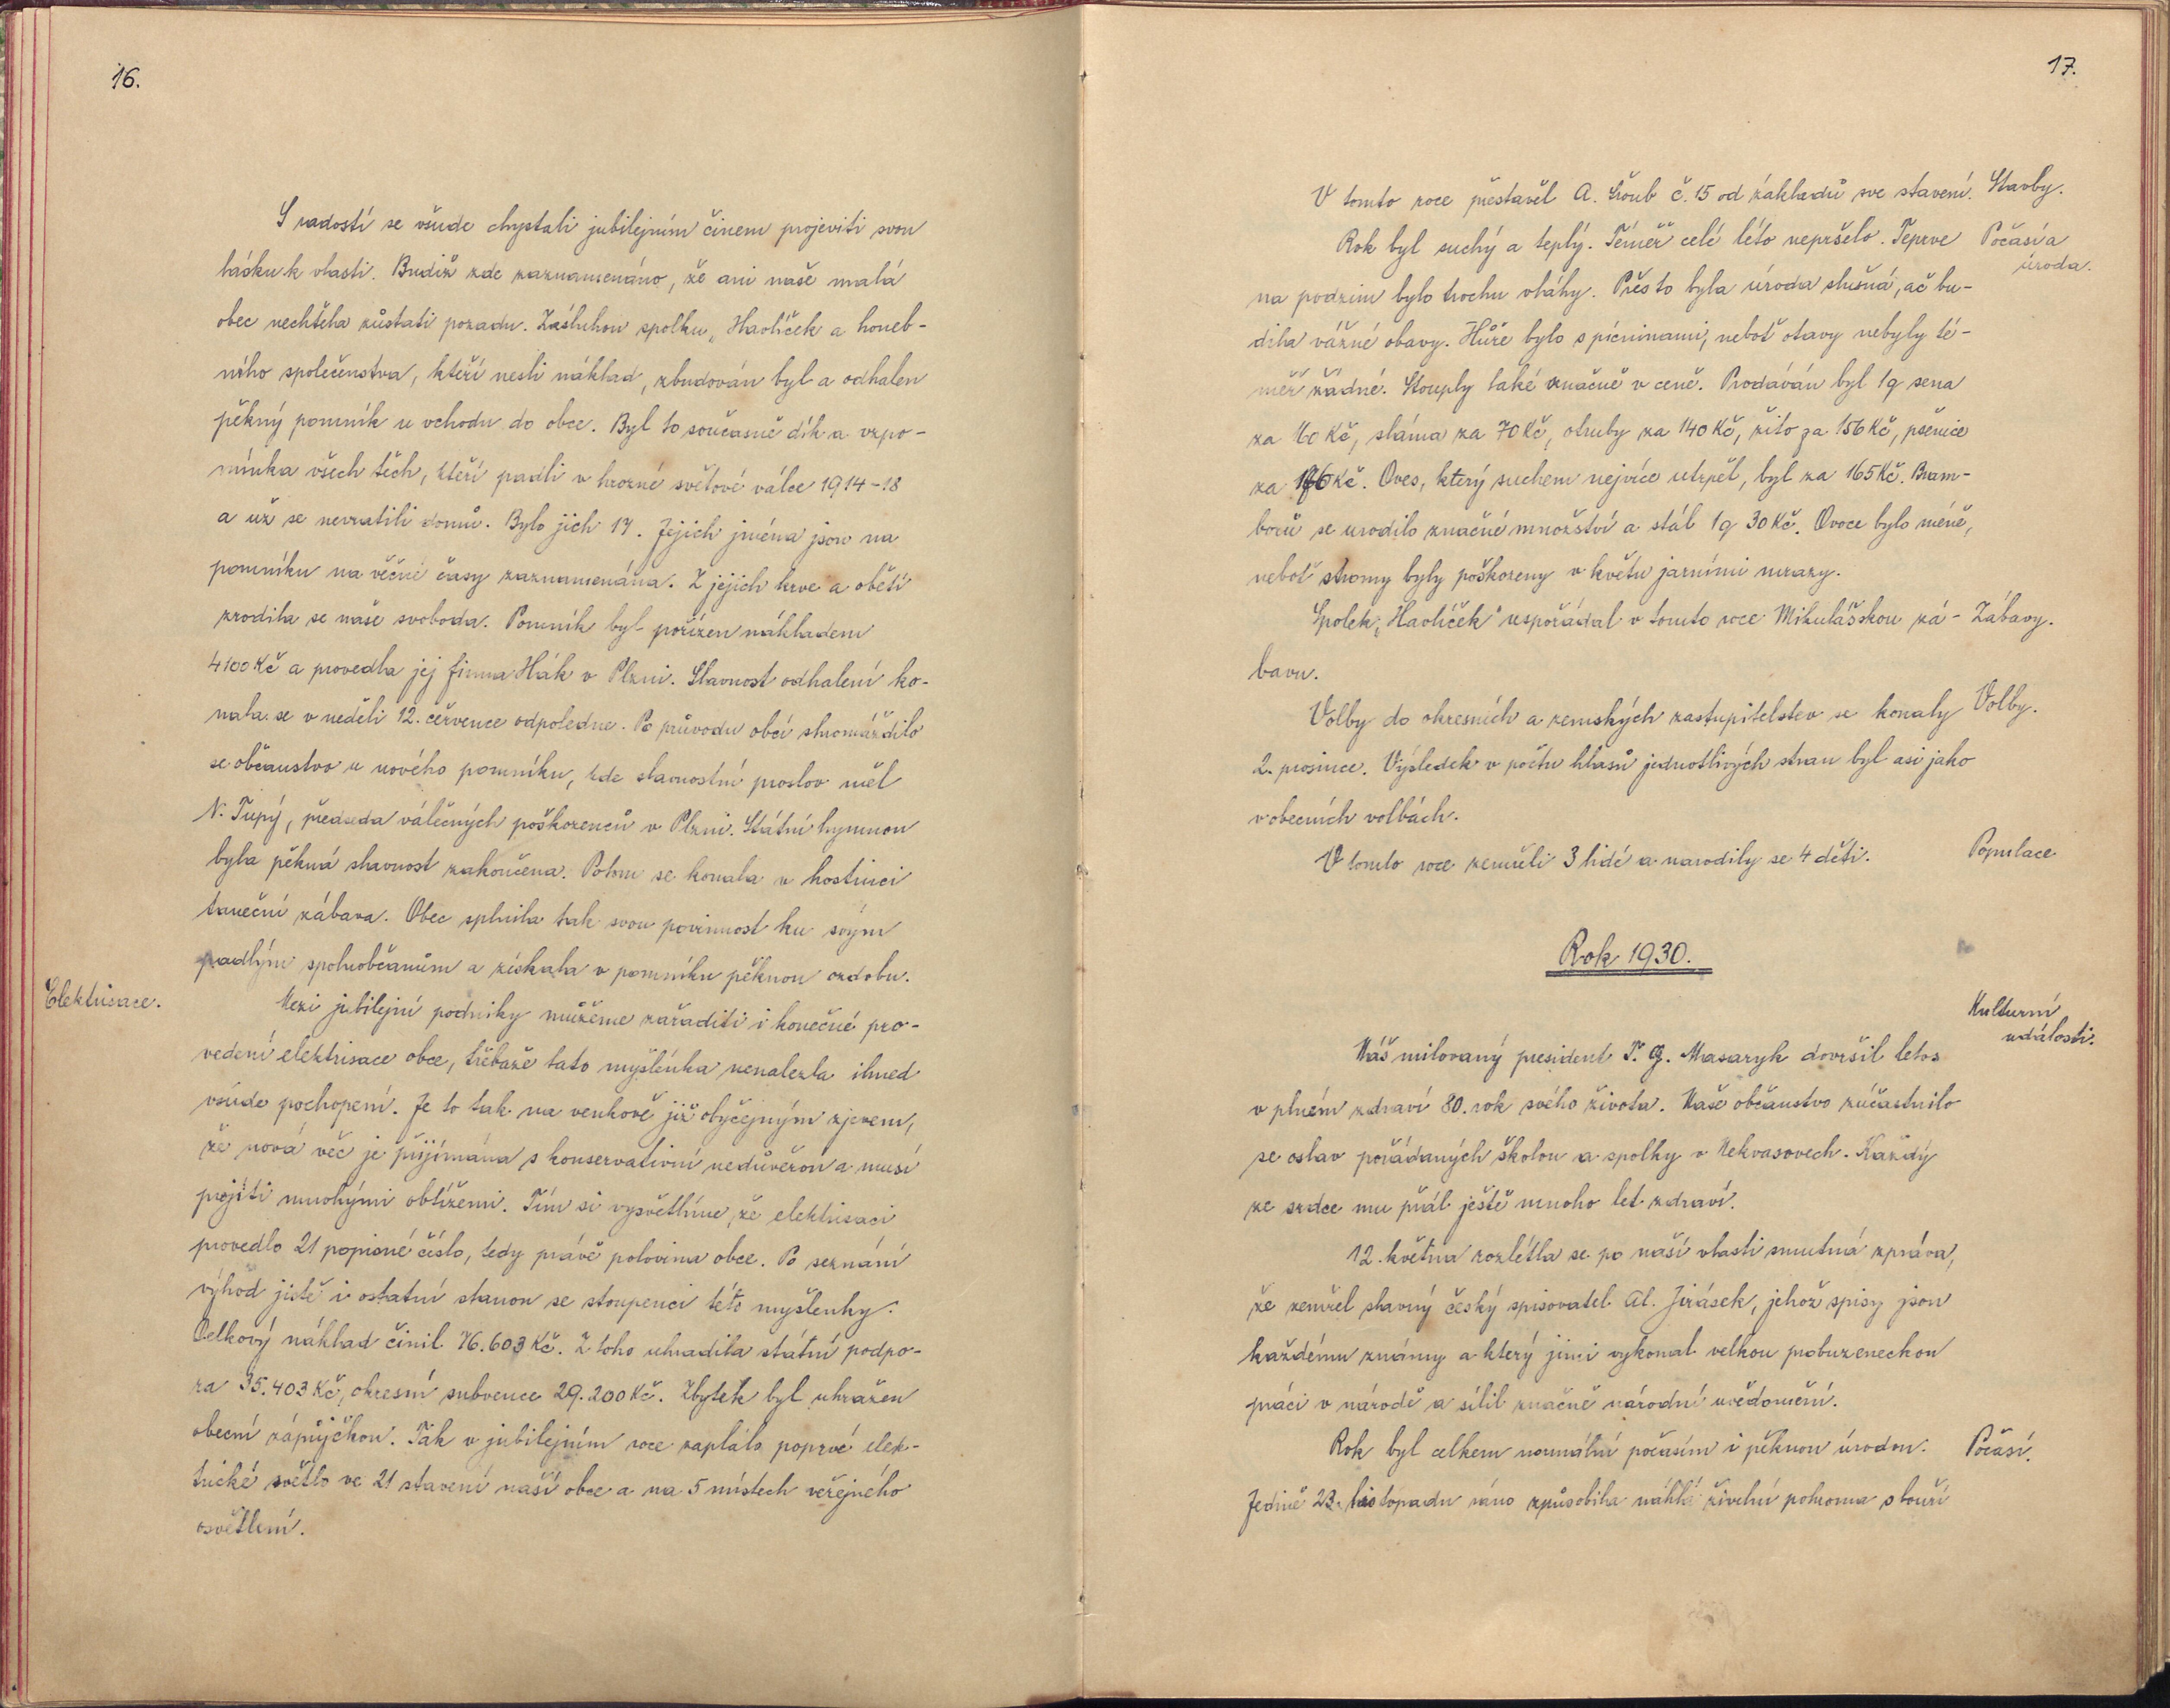 16.
S radostí se všude chystali jubilejním činem projeviti svou
lásku k vlasti. Budiž zde zaznamenáno, že ani naše malá
obec nechtěla zůstati pozadu. Zásluhou spolku „Havlíček a honeb-
ního společenstva, kteří nesli náklad, zbudován byl a odhalen
pěkný pomník u vchodu do obce. Byl to současně dík a vzpo-
mínka všech těch, kteří padli v hrozné světové válce 1914-18
a už se nevrátili domů. Bylo jich 17. Jejich jména jsou na
pomníku na věčné časy zaznamenána. Z jejich krve a obětí
zrodila se naše svoboda. Pomník byl pořízen nákladem
4100 Kč a provedla jej firma Hák v Plzni. Slavnost odhalení ko-
nala se v neděli 12. července odpoledne. Po průvodu obcí shromáždilo
se občanstvo u nového pomníku, kde slavnostní proslov měl
N. Tupý, předseda válečných poškozenců v Plzni. Státní hymnou
byla pěkná slavnost zakončena. Potom se konala v hostinci
taneční zábava. Obec splnila tak svou povinnost ku svým
padlým spoluobčanům a získala v pomníku pěknou ozdobu.
Elektrisace.
Mezi jubilejní podniky můžeme zařaditi i konečné pro-
vedení elektrisace obce, třebaže tato myšlénka nenalezla ihned
všude pochopení. Je to tak na venkově již obyčejným zjevem,
že nová věc je přijímána s konservativní nedůvěrou a musí
projíti mnohými obtížemi. Tím si vysvětlíme, že elektrisaci
provedlo 21 popisné číslo, tedy právě polovina obce. Po seznání
výhod jistě i ostatní stanou se stoupenci této myšlenky.
Celkový náklad činil 76.603 Kč. Z toho uhradila státní podpo-
ra 35.403 Kč, okresní subvence 29.200 Kč. Zbytek byl uhražen
obecní zápůjčkou. Tak v jubilejním roce zaplálo poprvé elek-
trické světlo ve 21 stavení naší obce a na 5 místech veřejného
osvětlení.
17.
V tomto roce přestavěl A. Šroub č. 15 od základů své stavení. Stavby.
Rok byl suchý a teplý. Téměř celé léto nepršelo. Teprve Počasí a
úroda.
na podzim bylo trochu vláhy. Přes to byla úroda slušná, ač bu-
dila vážné obavy. Hůře bylo s pícninami, neboť otavy nebyly té-
měř žádné. Stouply také značně v ceně. Prodáván byl 1 q sena
za 160 Kč, sláma za 70 Kč, otruby za 140 Kč, žito za 156 Kč, pšenice
za 176 Kč. Oves, který suchem nejvíce utrpěl, byl za 165 Kč. Bram-
borů se urodilo značné množství a stál 1 q 30 Kč. Ovoce bylo méně,
neboť stromy byly poškozeny v květu jarními mrazy.
Spolek „Havlíček" uspořádal v tomto roce Mikulášskou zá- Zábavy.
bavu.
Volby do okresních a zemských zastupitelstev se konaly Volby.
2. prosince. Výsledek v počtu hlasů jednotlivých stran byl asi jako
v obecních volbách.
V tomto roce zemřeli 3 lidé a narodily se 4 děti. Populace
Rok 1930.
Kulturní
události.
Náš milovaný president T. G. Masaryk dovršil letos
v plném zdraví 80. rok svého života. Naše občanstvo zúčastnilo
se oslav pořádaných školou a spolky v Nekvasovech. Každý
ze srdce mu přál ještě mnoho let zdraví.
12. května rozlétla se po naší vlasti smutná zpráva,
že zemřel slavný český spisovatel Al. Jirásek, jehož spisy jsou
každému známy a který jimi vykonal velkou probuzeneckou
práci v národě a sílil značně národní uvědomění.
Rok byl celkem normální počasím i pěknou úrodou. Počasí.
Jedině 23. listopadu ráno způsobila náhlá živelní pohroma s bouří